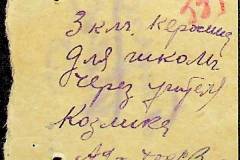 331
3 клг. керосина
для школы
через учителя
Козлика